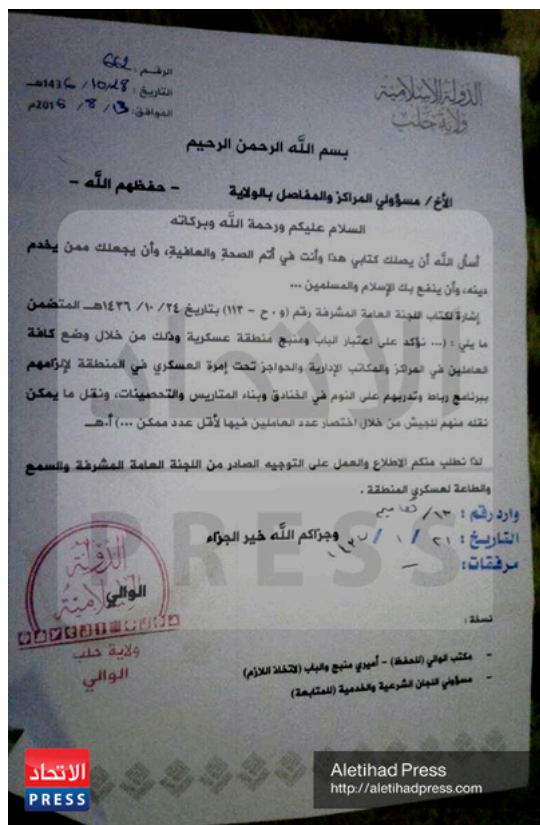 الدولة الإسلامية
ولاية حلب
الرقم: 662
التاريخ: 28/10/1436هـ
الموافق: 13/8/2015م
بسم الله الرحمن الرحيم
الأخ/ مسؤولي المراكز والمفاصل بالولاية - حفظهم الله -
السلام عليكم ورحمة الله وبركاته
أسأل الله أن يصلك كتابي هذا وأنت في أتم الصحة والعافية، وأن يجعلك ممن يخدم
دينه، وأن ينفع بك الإسلام والمسلمين ...
إشارةً لكتاب اللجنة العامة المشرفة رقم (و . ح - ١١٣) بتاريخ ٢٤/ ١٠/ ١٤٣٦هـ المتضمن
ما يلي: (... نؤكد على اعتبار الباب ومنبج منطقة عسكرية وذلك من خلال وضع كافة
العاملين في المراكز والمكاتب الإدارية والحواجز تحت إمرة العسكري في المنطقة لإلزامهم
ببرنامج رباط وتدربهم على النوم في الخنادق وبناء المتاريس والتحصينات، ونقل ما يمكن
نقله منهم للجيش من خلال اختصار عدد العاملين فيها لأقل عدد ممكن ...) أ.هـ
لذا نطلب منكم الاطلاع والعمل على التوجيه الصادر من اللجنة العامة المشرفة والسمع
والطاعة لعسكري المنطقة .
وارد رقم: ٦٣/
التاريخ: ٢١/ ١/
مرفقات: -
وجزاكم الله خير الجزاء
الدولة الإسلامية
الوالي
ولاية حلب
الوالي
نسخة :
- مكتب الوالي (للحفظ) - أميري منبج والباب (لاتخاذ اللازم)
- مسؤولي اللجان الشرعية والخدمية (للمتابعة)
الاتحاد
PRESS
الاتحاد
PRESS
Aletihad Press
http://aletihadpress.com